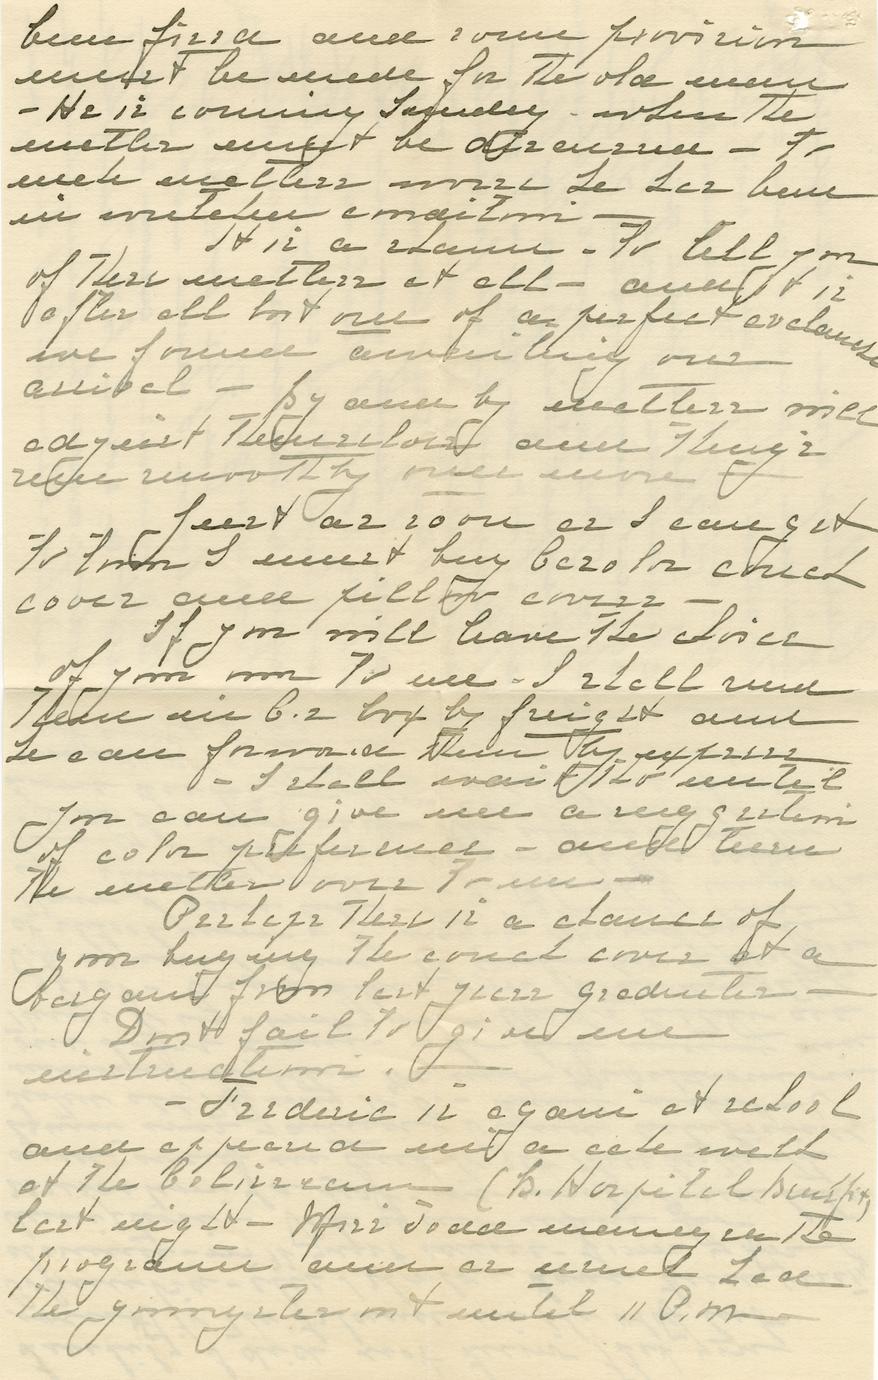 been fired and some provision
must be made for the old man
- He is coming Sunday - when the
matter must be discussed - To
make matters worse he has been
in wretched condition -
It is a shame - To tell you
of these matters at all - and it is
after all but one of a perfect avalanche
we found awaiting our
arrival - By and by matters will
adjust themselves and things
run smoothly once more -
Just as soon as I can get
To Town I must buy couch
cover and pillow covers -
If you will leave the choice
of your own To me - I shall send
them in box by freight and
he can forward them by express
- I shall wait tho until
you can give me a suggestion
of color preference - and turn
the matter over To me -
Perhaps there is a chance of
your buying the couch cover at a
bargain from last years graduates -
Don't fail To give me
instructions. -
- Frederic is again at school
and appeared in a
at the Coliseum (B. Hospital Benefit)
last night - Miss Todd manages the
program and as usual had
the youngsters out until 11 P.M